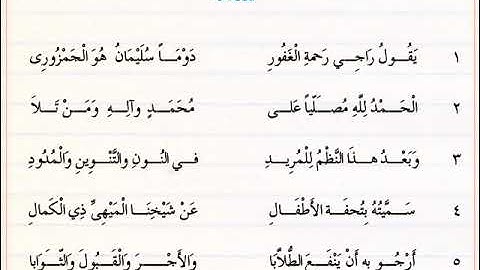 ١ يَقُولُ رَاجِي رَحمةِ الْغَفُورِ دَوْمًا سُلَيْمَانُ هُوَ الْحَمْزُورِى
٢ الْحَمْدُ لِلَّهِ مُصَلِّيًا عَلَى مُحَمَدٍ وَآلِهِ وَمَنْ تَلَا
٣ وَبَعْدُ هذَا النَّظْمُ لِلْمُرِيدِ في النُونِ والتَّنْوِينِ وَالْمُدُودِ
٤ سَمَّيْتُهُ بِتُحفَةِ الأَطْفَالِ عَنْ شَيْخِنَا الْمَيْهِىِّ ذِي الْكَمالِ
٥ أَرْجُو بِهِ أَنْ يَنْفَعَ الطُّلَّابَا وَالأَجْرَ وَالْقَبُولَ وَالثَّوَابَا